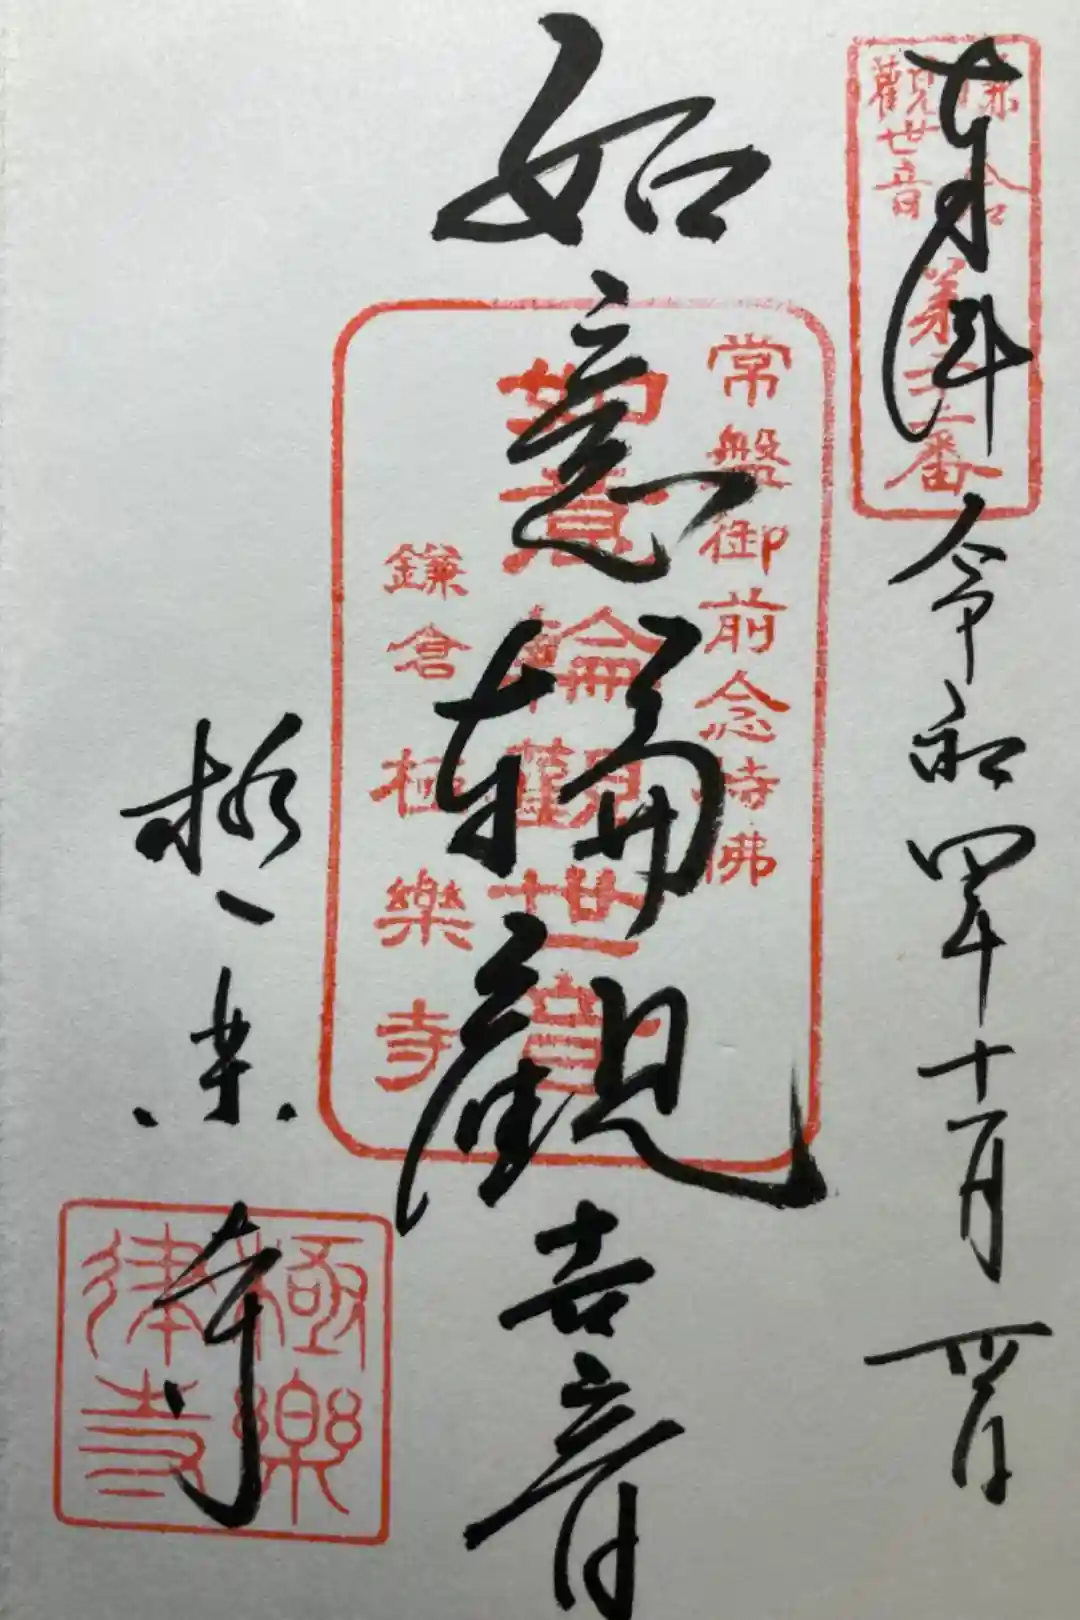 奉拝 令和四年十一月
鎌倉
觀世音
第廿二番
如意輪観世音
常盤御前念持佛
如意輪觀世音
鎌倉極樂寺
極楽寺
極樂
律寺